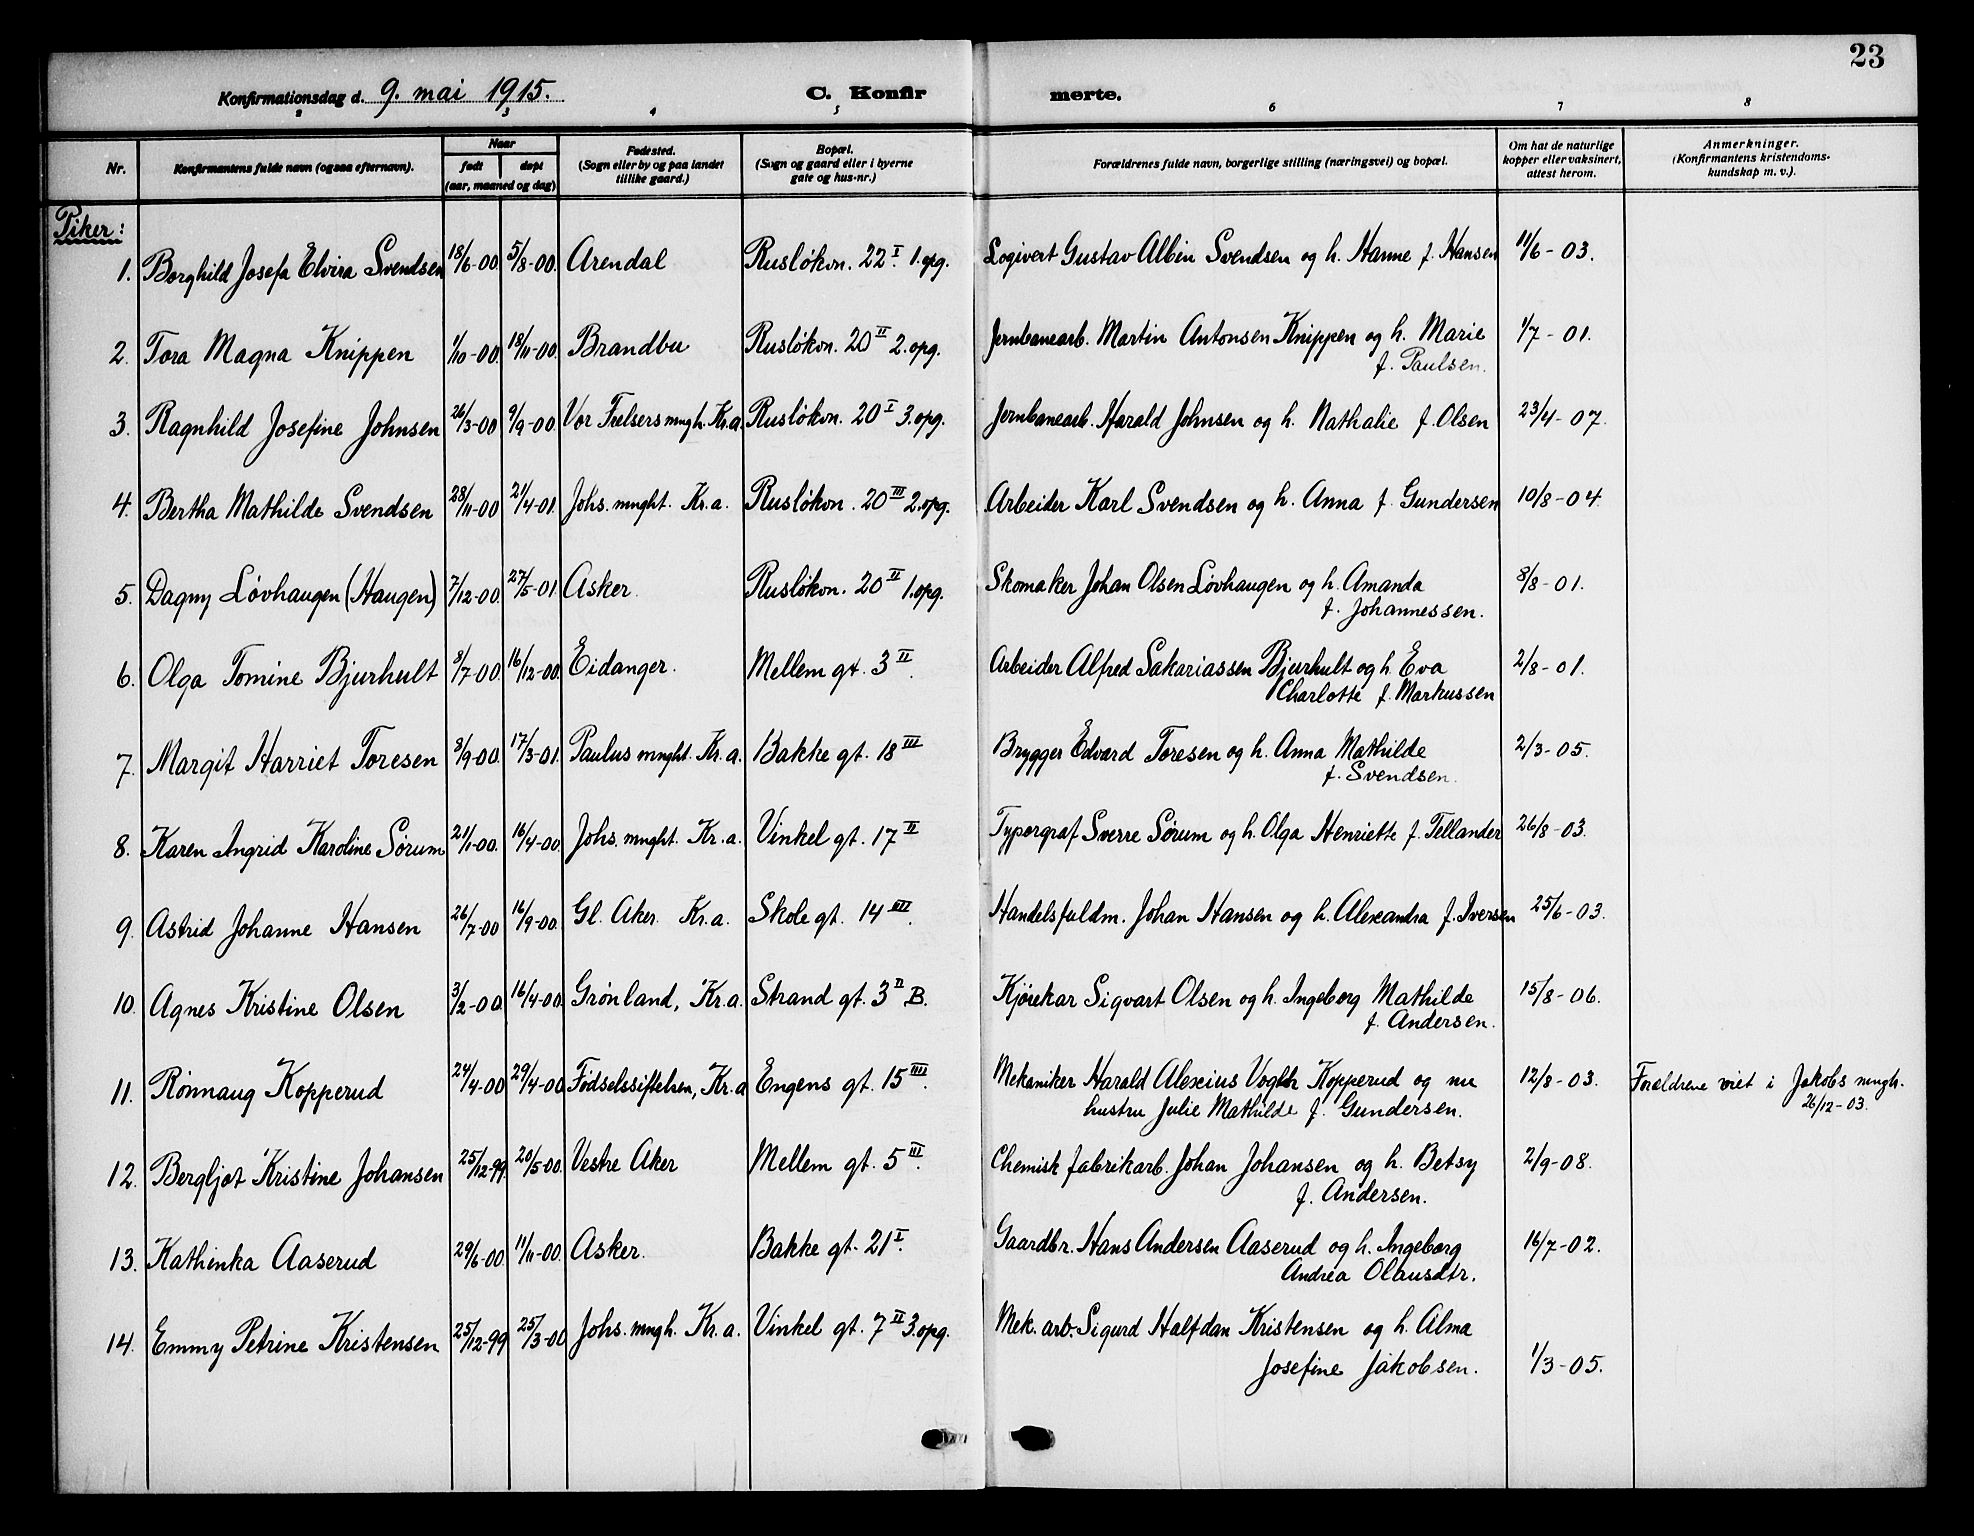 23
Konfirmationsdag d. 9. mai 1915. C. Konfir merte.
2 3 4 5 6 7 8
Nr. Konfirmantens fulde navn (ogsaa efternavn). Naar født døpt (aar, maaned og dag) Fødested. (Sogn eller by og paa landet tillike gaard.) Bopæl. (Sogn og gaard eller i byerne gate og hus-nr.) Forældrenes fulde navn, borgerlige stilling (næringsvei) og bopæl. Om hat de naturlige kopper eller vaksinert, attest herom. Anmerkninger. (Konfirmantens kristendoms-kundskap m. v.).
Piker:
1. Borghild Josefa Elvira Svendsen 18/6-00 5/8-00. Arendal Rusløkvn. 22 I. 1.opg. Logivert Gustav Albin Svendsen og h. Hanne f. Hansen 11/6-03.
2. Tora Magna Knippen 1/10-00. 18/11-00. Brandbu Rusløkvn. 20 II 2.opg. Jernbanearb. Martin Antonsen Knippen og h. Marie 1/7-01.
f. Paulsen.
3. Ragnhild Josefine Johnsen 26/3-00 9/9-00. Vor Frelsers mngh. Kr.a Rusløkvn. 20 I 3.opg. Jernbanearb. Harald Johnsen og h. Nathalie f. Olsen 23/4-07.
4. Bertha Mathilde Svendsen 28/11-00 21/4-01. Johs. mnght. Kr.a. Rusløkvn. 20 III 2.opg. Arbeider Karl Svendsen og h. Anna f. Gundersen 10/8-04.
5. Dagny Løvhaugen (Haugen) 7/12-00. 27/5-01. Asker. Rusløkvn. 20 II 1.opg. Skomaker Johan Olsen Løvhaugen og h. Amanda 8/8-01.
f. Johannessen.
6. Olga Tomine Bjurhult 8/7-00. 16/12-00. Eidanger. Mellem gt. 3 II. Arbeider Alfred Sakariassen Bjurhult og h. Eva 2/8-01.
Charlotte f. Markussen
7. Margit Harriet Toresen 8/9-00. 17/3-01. Paulus mnght. Kr.a. Bakke gt. 18 III Brygger Edvard Toresen og h. Anna Mathilde 2/3-05.
f. Svendsen.
8. Karen Ingrid Karoline Sørum 21/1-00. 16/4-00. Johs. mnght. Kr.a. Vinkel gt. 17 II Typograf Sverre Sørum og h. Olga Henriette f. Tellander 26/8-03.
9. Astrid Johanne Hansen 26/7-00 16/9-00. Gl. Aker. Kr.a. Skole gt. 14 III. Handelsfuldm. Johan Hansen og h. Alexandra f. Iversen 25/6-03.
10. Agnes Kristine Olsen 3/2-00. 16/4-00. Grønland, Kr.a. Strand gt. 3 II B. Kjørekar Sigvart Olsen og h. Ingeborg Mathilde 15/8-06.
f. Andersen.
11. Rønnaug Kopperud 24/4-00 29/4-00 Fødselsstiftelsen, Kr.a Engens gt. 15 III. Mekaniker Harald Alexius Kopperud og nu 12/8-03. Forældrene viet i Jakobs mngh.
hustru Julie Mathilde f. Gundersen. 26/12-03.
12. Bergljot Kristine Johansen 25/12-99. 20/5-00. Vestre Aker Mellem gt. 5 III. Chemisk fabrikarb. Johan Johansen og h. Betsy 2/9-08.
f. Andersen.
13. Kathinka Aaserud 29/6-00. 11/11-00. Asker. Bakke gt. 21 I. Gaardbr. Hans Andersen Aaserud og h. Ingeborg 16/7-02.
Andrea Olausdtr.
14. Emmy Petrine Kristensen 25/12-99 25/3-00 Johs. mngh. Kr.a. Vinkel gt. 7 II 3.opg. Mek. arb. Sigurd Halfdan Kristensen og h. Alma
Josefine Jakobsen. 1/3-05.